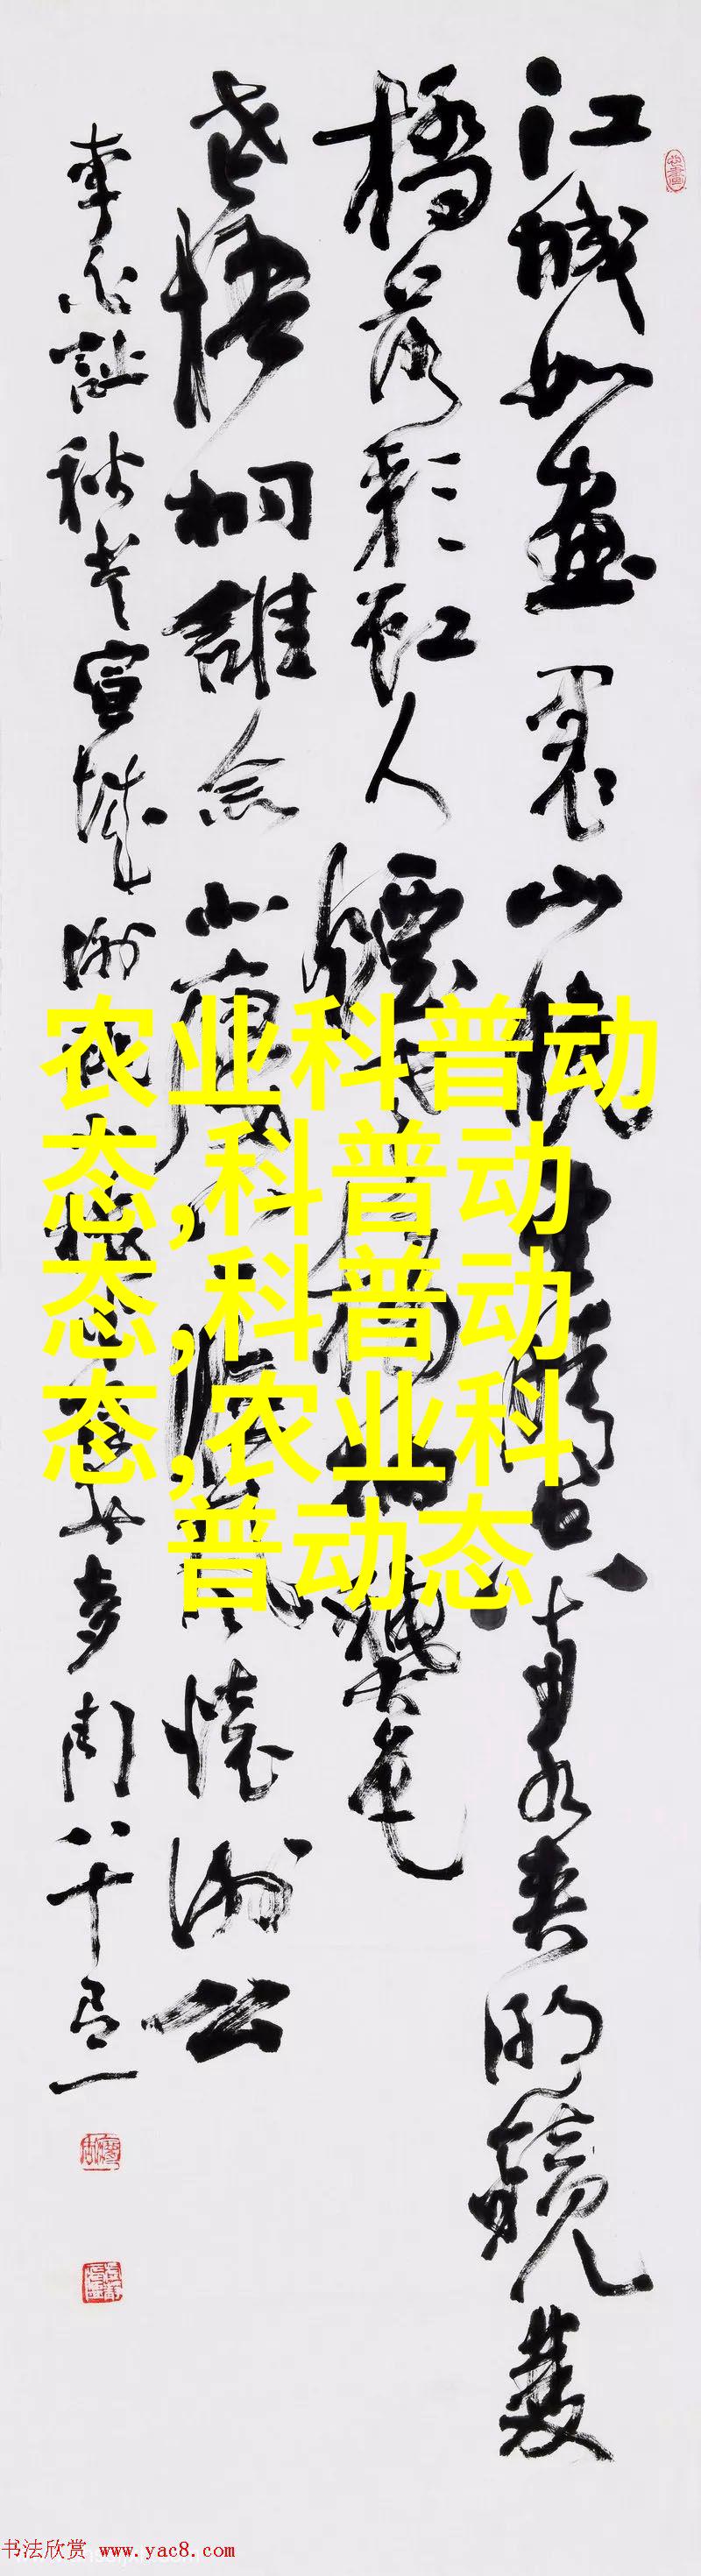 江城如画里山晓望晴空两水夹明镜双
桥落彩虹人烟寒橘柚秋色
老梧桐谁念北楼上临风怀谢公
李白诗秋登宣城谢朓北楼
八十又一
农业科普动
态,科普动
态,科普动
态,农业科
普动态
书法欣赏 www.yac8.com